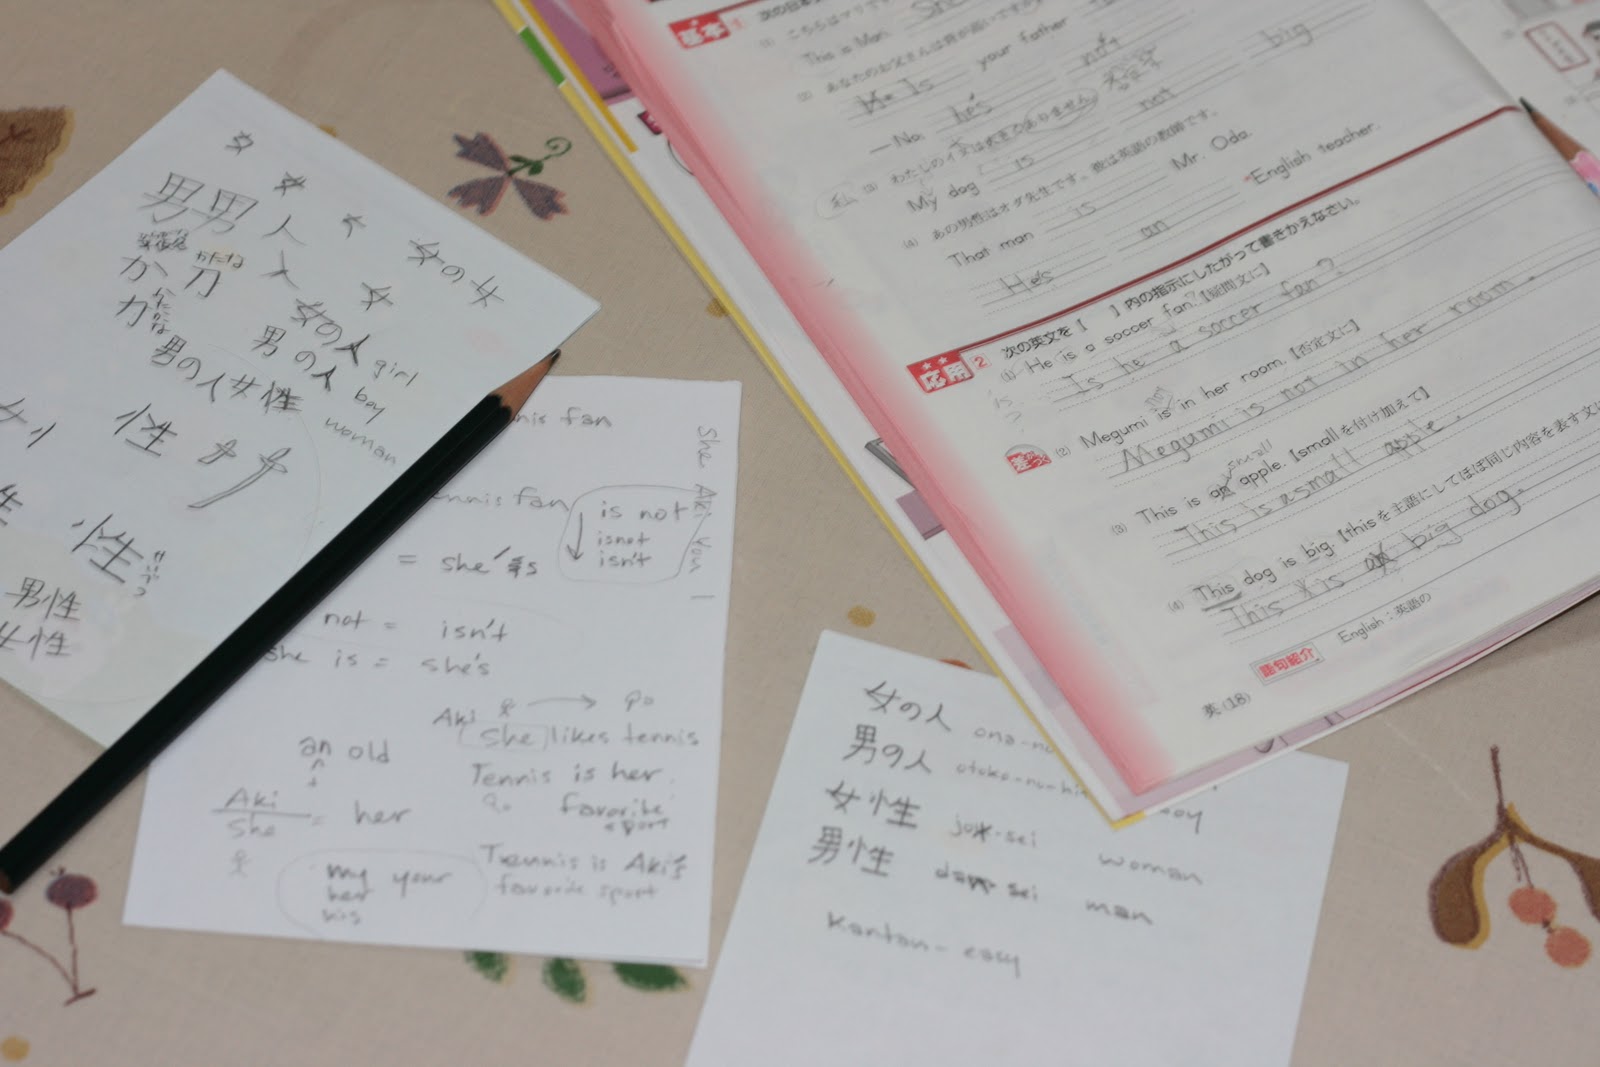 女
女
男男人
女の女
かたな
か刀人
女
カ
かたかな
女の人 girl
男の人 boy
男の人女性 woman
性
性
せいべつ
男性
女性
nnis fan
ennis fan
She Aki You I
is not
isnot
isn't
= she's
not = isn't
she is = she's
Aki → go
she likes tennis
an old
Tennis is her
go favorite sport
Aki
she = her
Tennis is Aki's
favorite sport
my your
her
his
女の人 ona-no
男の人 otoko-no-hi
oy
女性 jo-sei woman
男性 dan-sei man
kantan - easy
基本 1
(1) こちらはマリです
This is Mari. She
(2) あなたのお父さんは背が高いですか
He Is your father
— No, he's not
(3) わたしのイヌは大きくありません
私
My dog is not big
(4) あの男性はオダ先生です。彼は英語の教師です。
That man is Mr. Oda.
He's an English teacher.
応用 2 次の英文を【 】内の指示にしたがって書きかえなさい。
(1) He is a soccer fan.【疑問文に】
Is he a soccer fan?
(2) Megumi is in her room.【否定文に】
not
Megumi is not in her room.
(3) This is an apple.【smallを付け加えて】
small
This is a small apple.
(4) This dog is big.【thisを主語にしてほぼ同じ内容を表す文に
This is a big dog.
語句紹介 English：英語の
英(18)